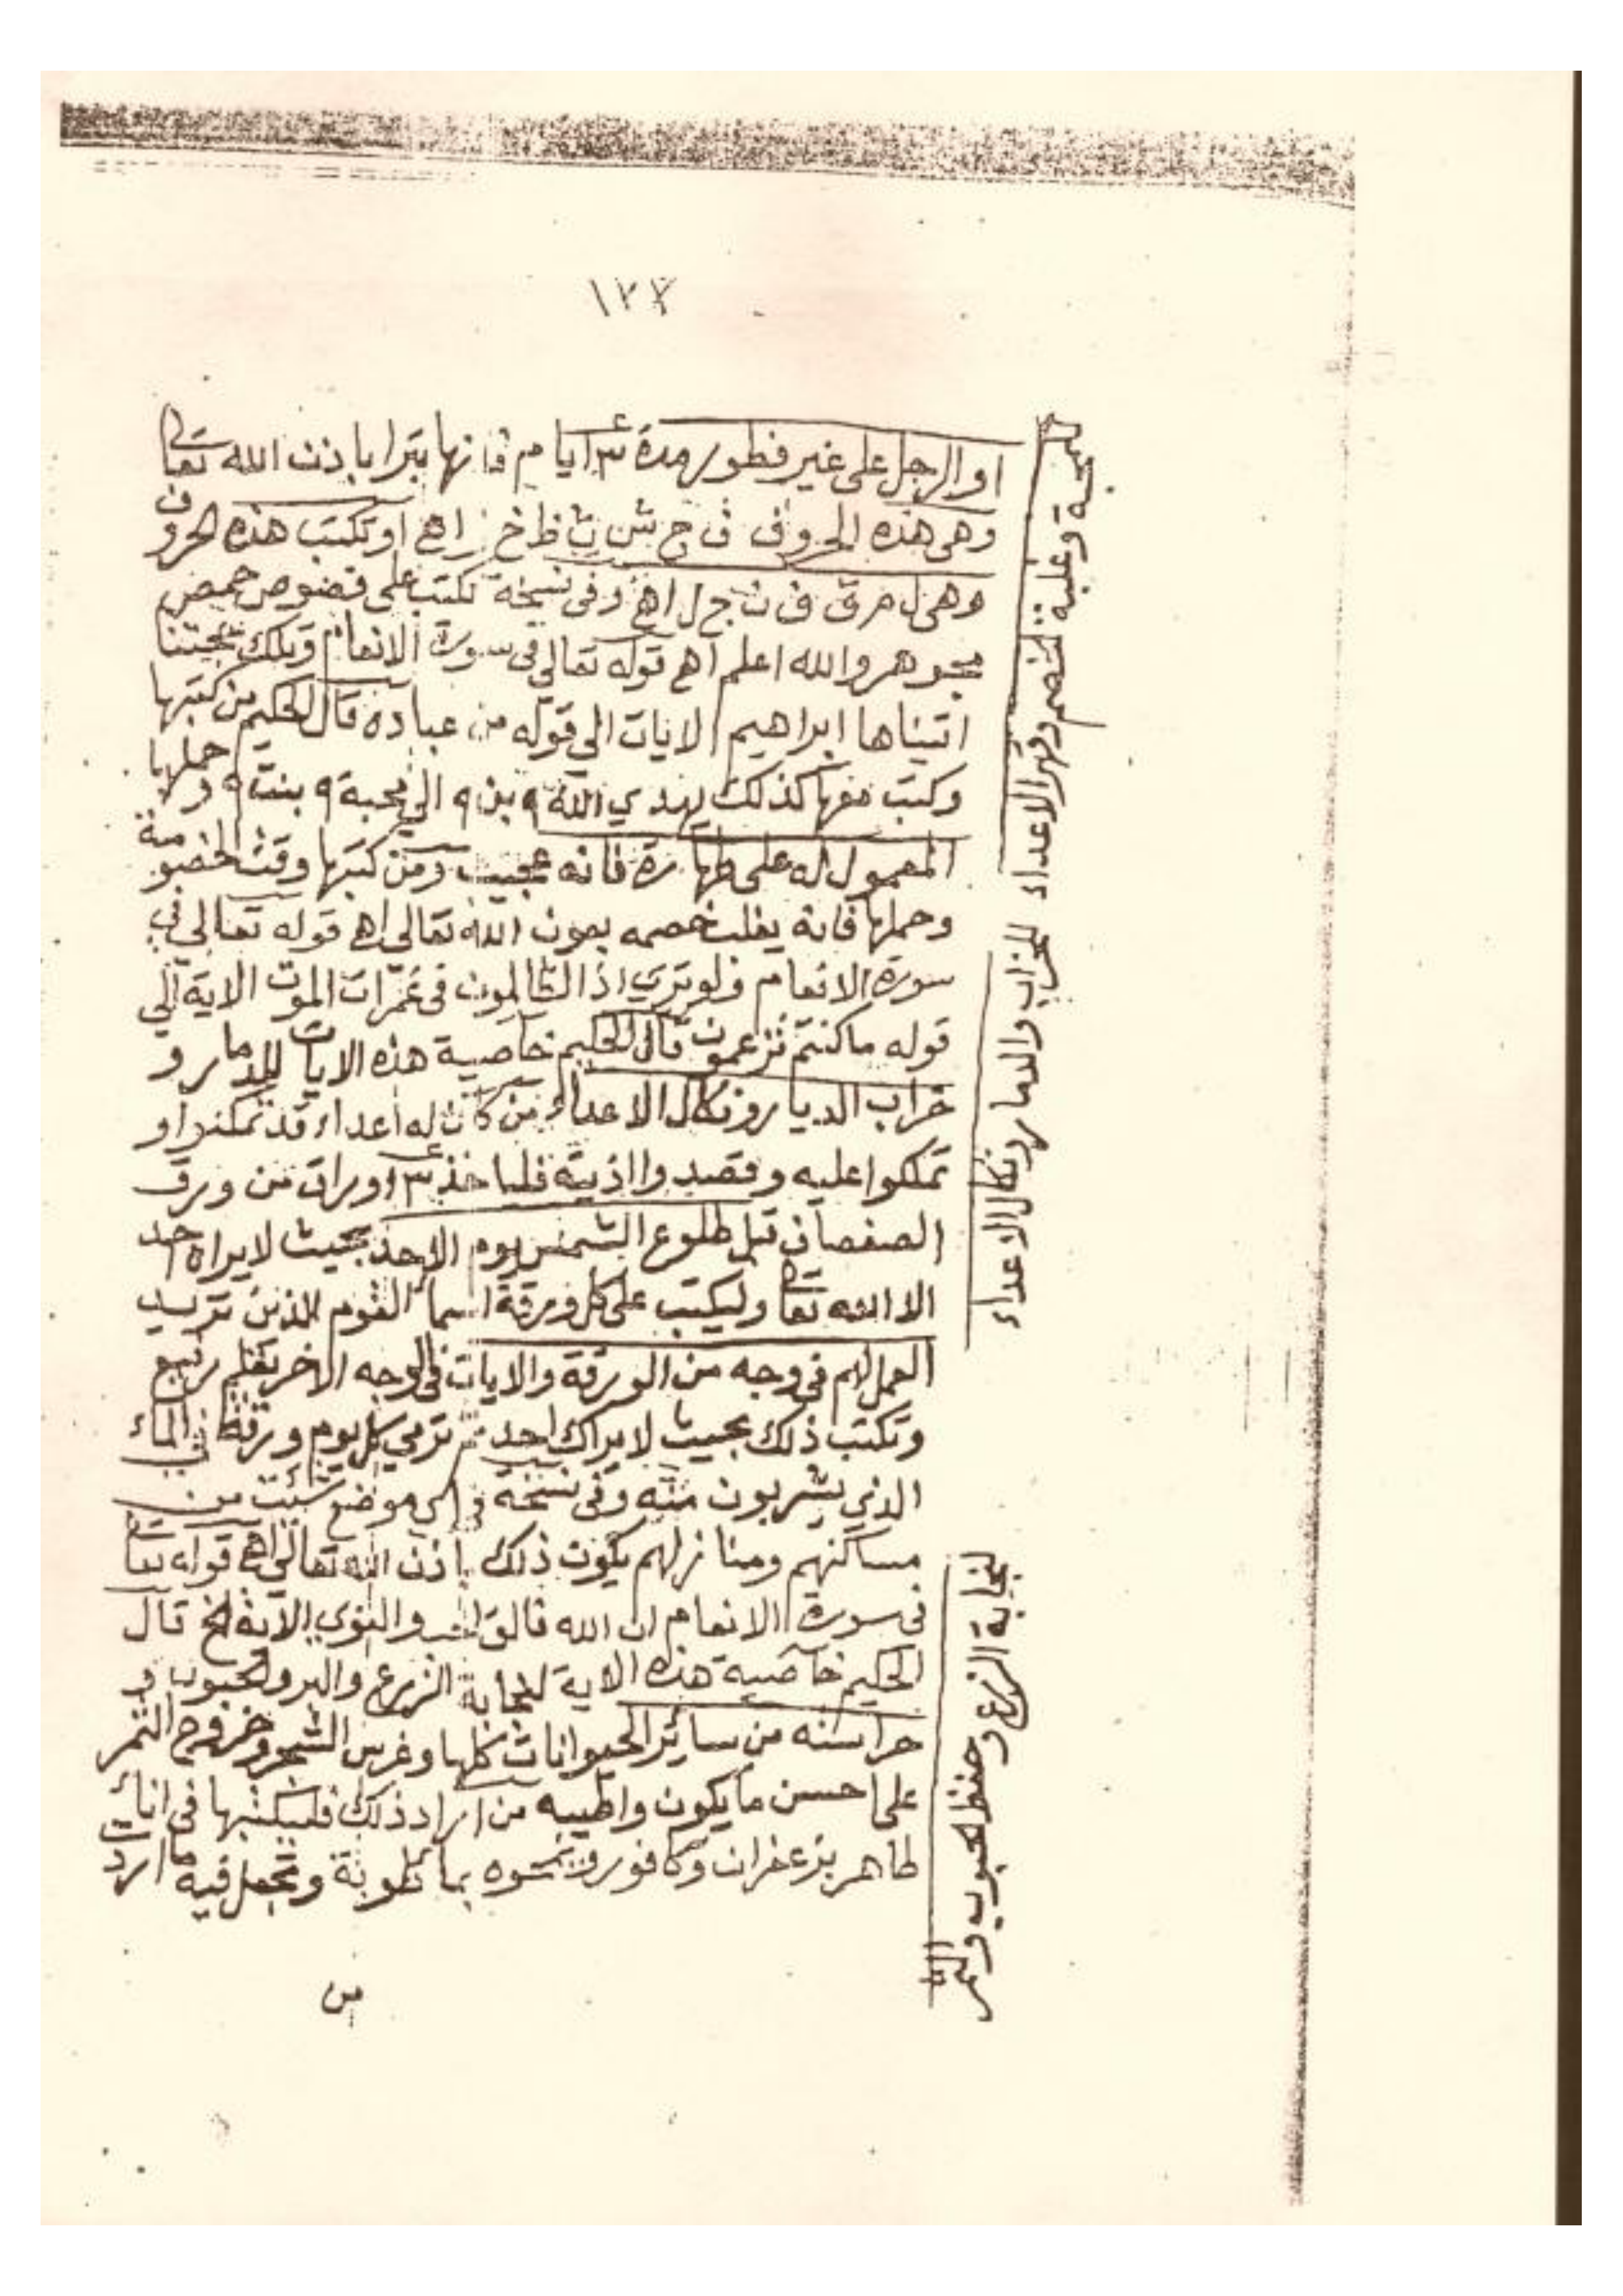 ١٢٧
او الرجل على غير فطور مدة ٣ ايام فانها تبرا باذن الله تعا
وهي هذه الحروف ف ج ش ث ظ خ ز اهـ او تكتب هذه الحروف
وهي ل م ق ف ن ج ل اهـ وفي نسخة تكتب على فصوص حمص
مجوهر والله اعلم اهـ قوله تعالى في سورة الانعام وتلك حجتنا
اتيناها ابراهيم الايات الي قوله من عباده قال الحكيم من كتبها
وكتب معها كذلك يهدي الله ٩ بن ٩ الي محبة ٩ بنت ٩ وحملها
المعمول له على طهارة فانه عجيب ومن كتبها وقت الخصومة
وحملها فانه يغلب خصمه بعون الله تعالى اهـ قوله تعالي في
سورة الانعام ولو تري اذ الظالمون في غمرات الموت الاية الي
قوله ما كنتم تزعمون قال الحكيم خاصية هذه الايات للدمار و
خراب الديار ونكال الاعداء من كان له اعداء قد تمكنوا او
تملكوا عليه وقصدوا اذيته فلياخذ ٣ اوراق من ورق
الصفصاف قبل طلوع الشمس يوم الاحد بحيث لا يراه احد
الا الله تعا وليكتب على كل ورقة اسما القوم الذين تريد
العمل لهم في وجه من الورقة والايات في الوجه الاخر بقلم رفيع
وتكتب ذلك بحيث لا يراك احد ثم ترمي كل يوم ورقة في الماء
الذي يشربون منه وفي نسخة في اي موضع شئت من
مساكنهم ومنازلهم يكون ذلك باذن الله تعالى اهـ قوله تعا
في سورة الانعام ان الله فالق الحب والنوي الاية الخ قال
الحكيم خاصية هذه الاية لنجابة الزرع والبر والحبوب و
حراسته من سائر الحيوانات كلها وغرس الشجر وخروج الثمر
على احسن ما يكون واطيبه من اراد ذلك فليكتبها في اناء
طاهر بزعفران وكافور وتمحوه بماء وتجعل فيه ما اراد
من
محبة وغلبة الخصم وقهر الاعداء
للخراب والدمار ونكال الاعداء
لنجابة الزرع وحفظ الحبوب والثمر